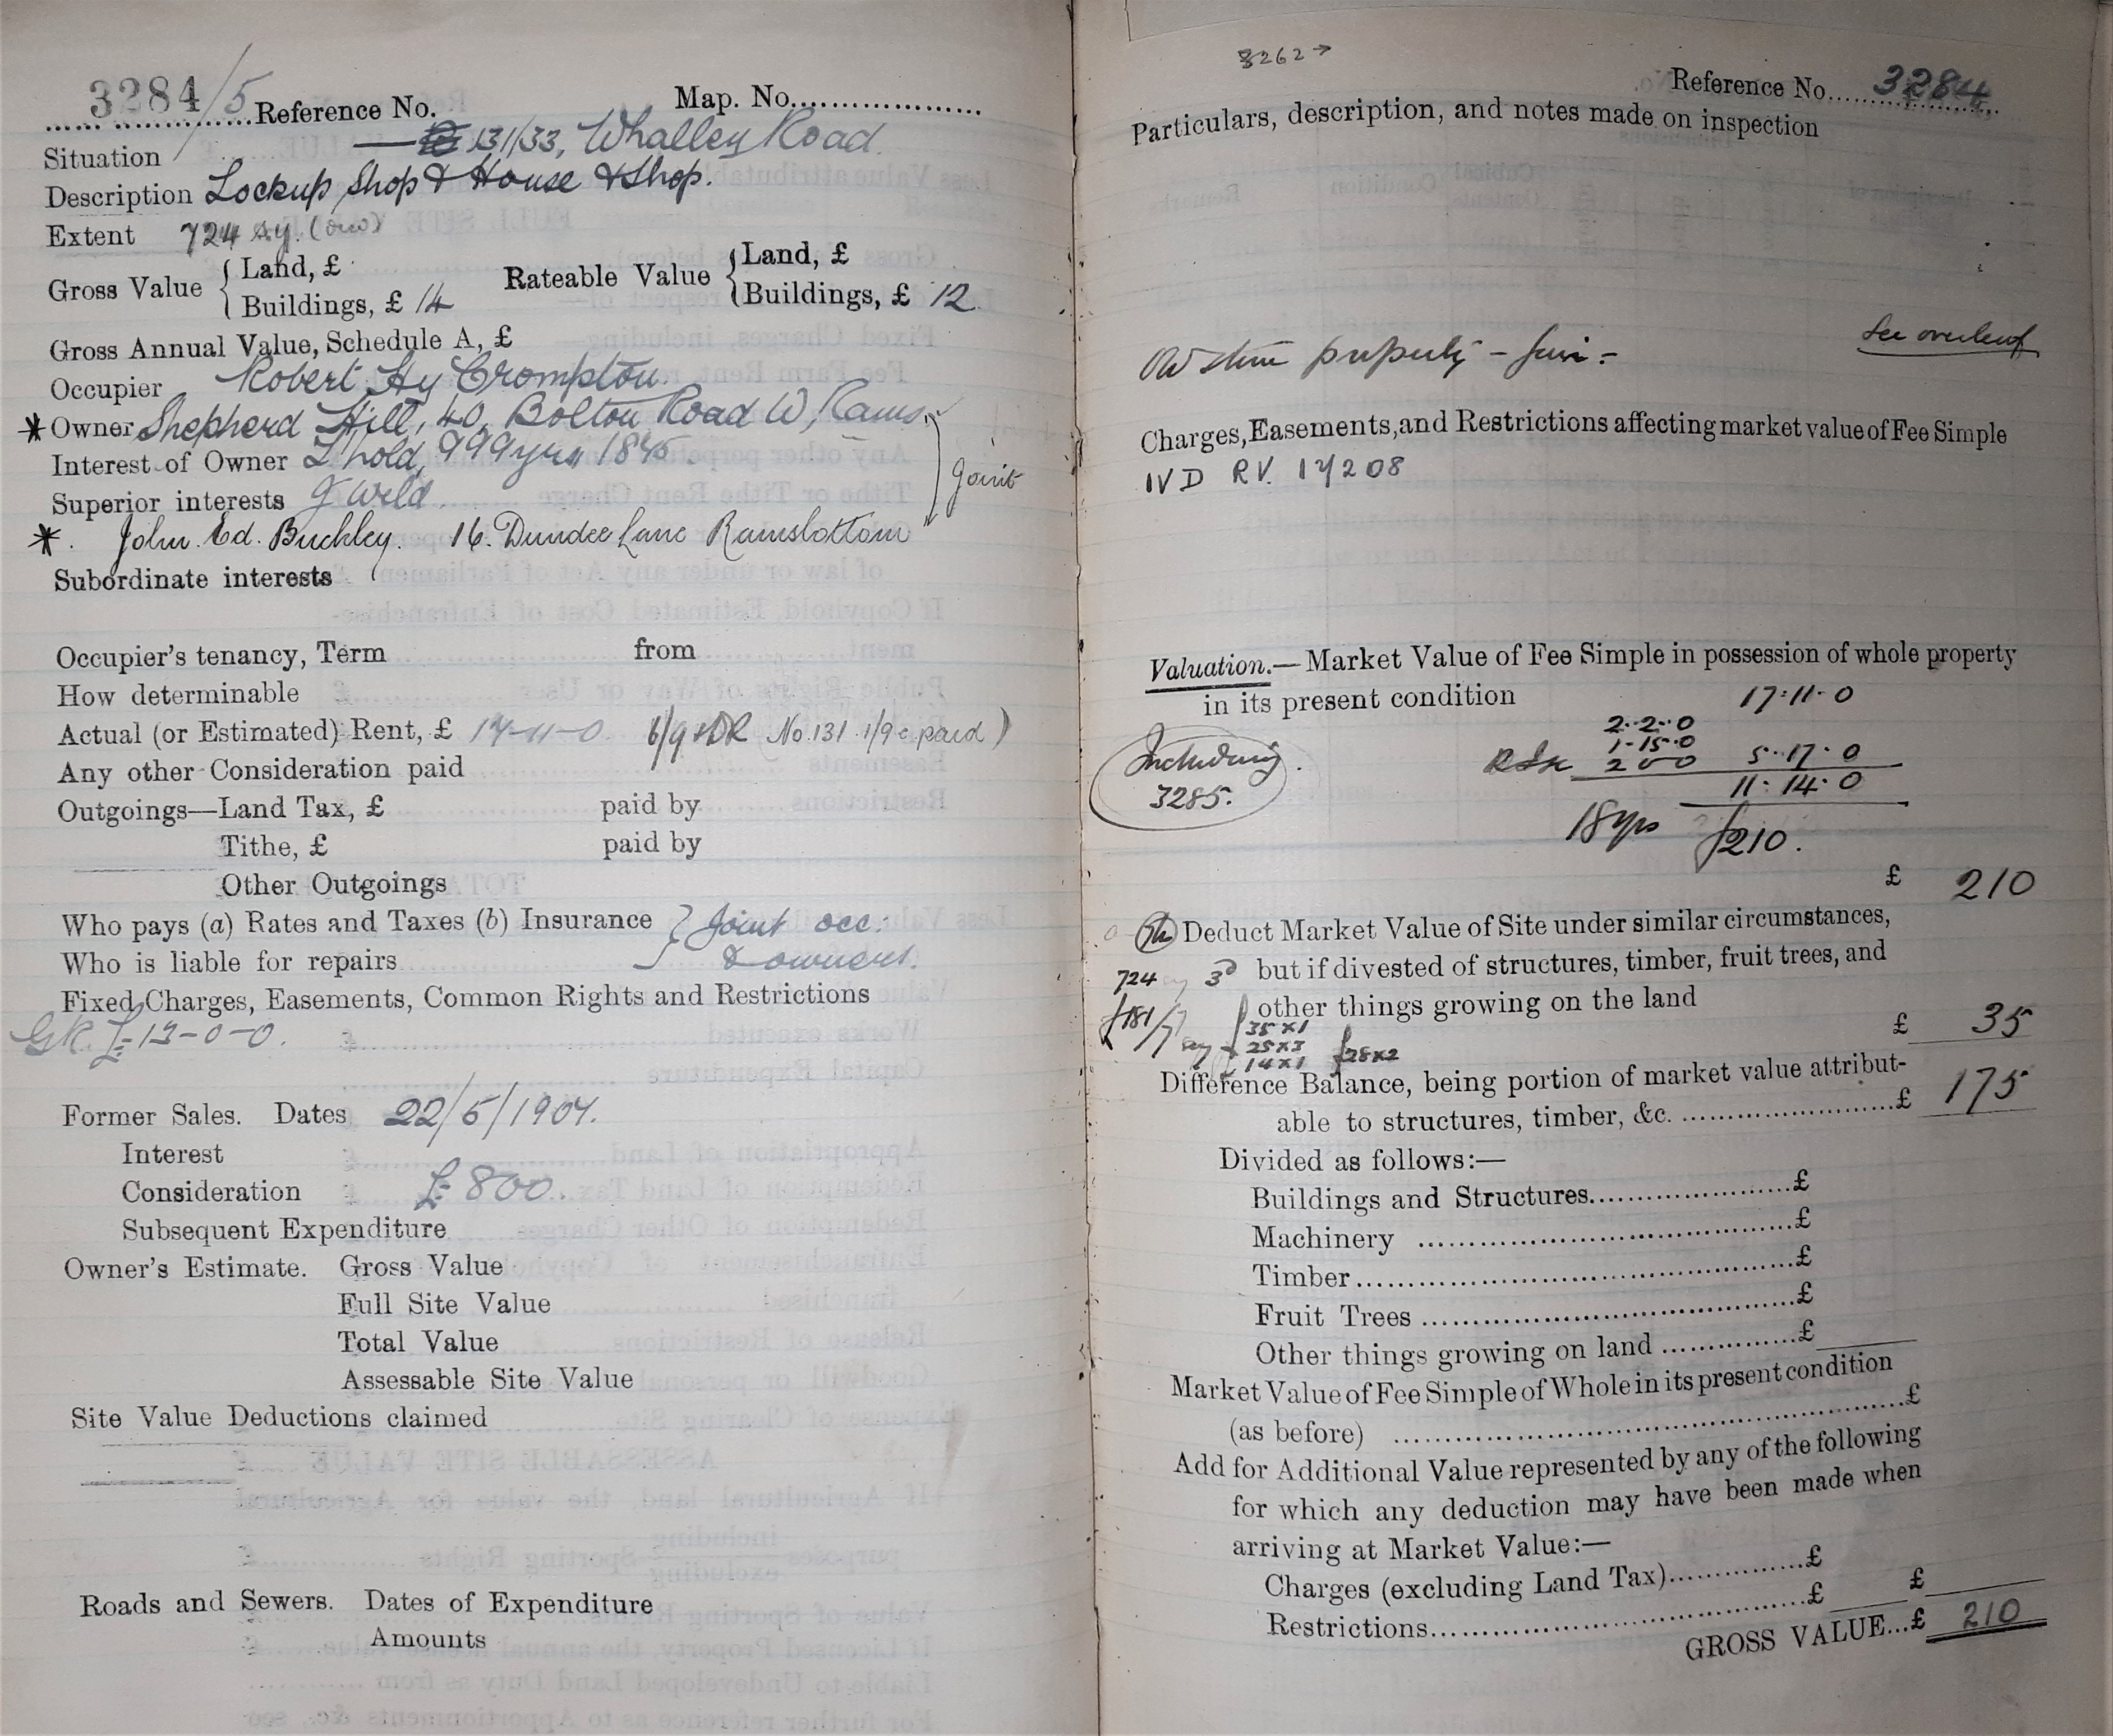 3284/5 Reference No. Map. No.
Situation 131/33, Whalley Road.
Description Lockup Shop & House & Shop.
Extent 724 sy.
Gross Value { Land, £ Rateable Value { Land, £
Buildings, £ 14 Buildings, £ 12
Gross Annual Value, Schedule A, £
Occupier Robert Hy Crompton.
* Owner Shepherd Hill, 40, Bolton Road W, Rams.
Interest of Owner L'hold, 999 yrs 1845. } Joint
Superior interests J Wild
* John. Ed. Buckley. 16. Dundee Lane Ramsbottom
Subordinate interests
Occupier's tenancy, Term from
How determinable
Actual (or Estimated) Rent, £ 17-11-0. 6/9 + DR (No 131 1/9 paid)
Any other Consideration paid
Outgoings—Land Tax, £ paid by
Tithe, £ paid by
Other Outgoings
Who pays (a) Rates and Taxes (b) Insurance } Joint occ.
Who is liable for repairs & owners.
Fixed Charges, Easements, Common Rights and Restrictions
GR. £-13-0-0.
Former Sales. Dates 22/5/1907.
Interest
Consideration £-800.
Subsequent Expenditure
Owner's Estimate. Gross Value
Full Site Value
Total Value
Assessable Site Value
Site Value Deductions claimed
Roads and Sewers. Dates of Expenditure
Amounts
3262 →
Reference No. 3284
Particulars, description, and notes made on inspection
See overleaf
Old stone property - fair -
Charges, Easements, and Restrictions affecting market value of Fee Simple
IVD RV. 17208
Valuation.—Market Value of Fee Simple in possession of whole property
in its present condition 17-11-0
2-2-0
Including 1-15-0
3285. 2 0 0 5-17-0
11-14-0
18 yrs £210.
£ 210
Deduct Market Value of Site under similar circumstances,
724 3d but if divested of structures, timber, fruit trees, and
other things growing on the land
£181/ 35 x 1 £ 35
25 x 3
14 x 1 £28 x 2
Difference Balance, being portion of market value attribut-
able to structures, timber, &c. £ 175
Divided as follows:—
Buildings and Structures £
Machinery £
Timber £
Fruit Trees £
Other things growing on land £
Market Value of Fee Simple of Whole in its present condition
(as before) £
Add for Additional Value represented by any of the following
for which any deduction may have been made when
arriving at Market Value:—
Charges (excluding Land Tax) £
Restrictions £ £
GROSS VALUE...£ 210